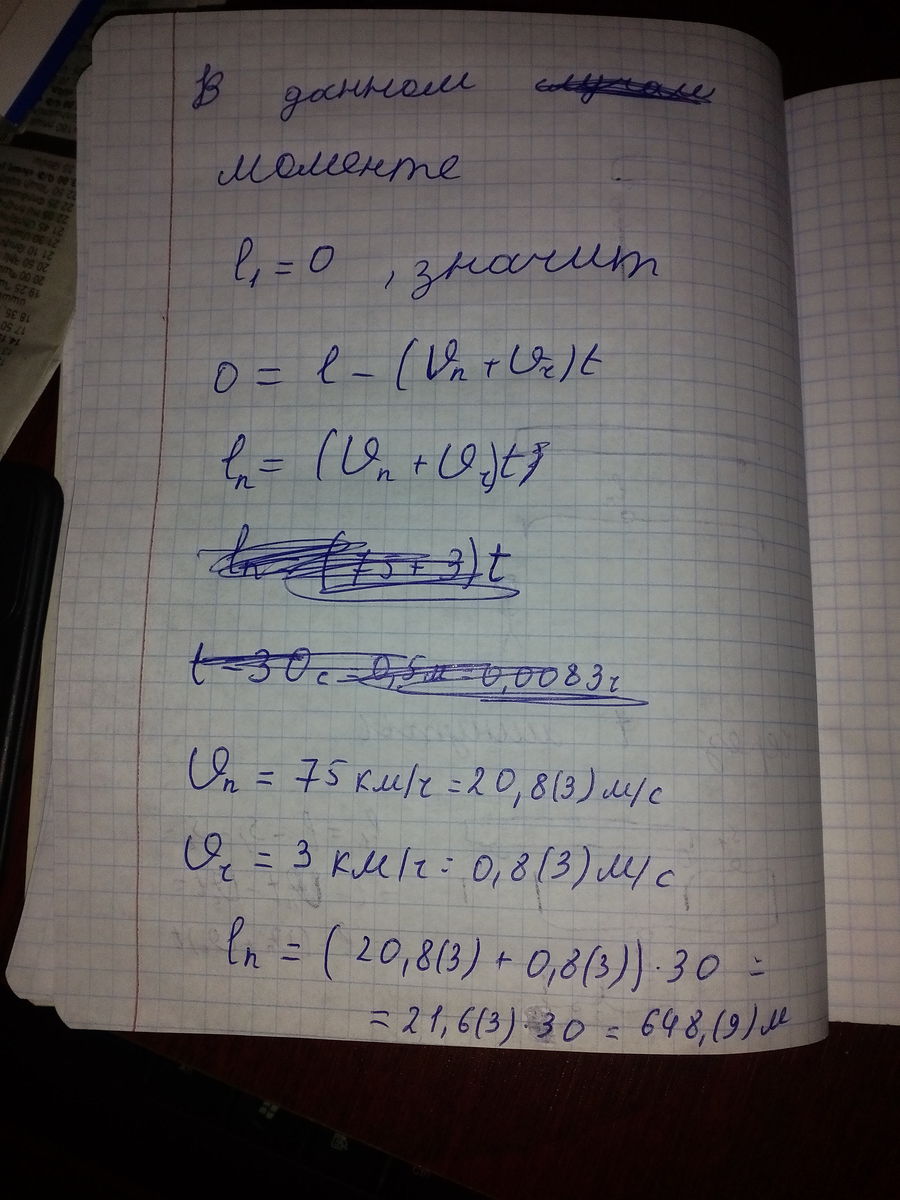 В данном случае
моменте
l₁ = 0 , значит
0 = l - (Vп + Vч)t
lп = (Vп + Vч)t;
lп = (75 + 3)t
t = 30с = 0,5м = 0,0083ч
Vп = 75 км/ч = 20,8(3) м/с
Vч = 3 км/ч = 0,8(3) м/с
lп = (20,8(3) + 0,8(3)) · 30 =
= 21,6(3) · 30 = 648,(9) м